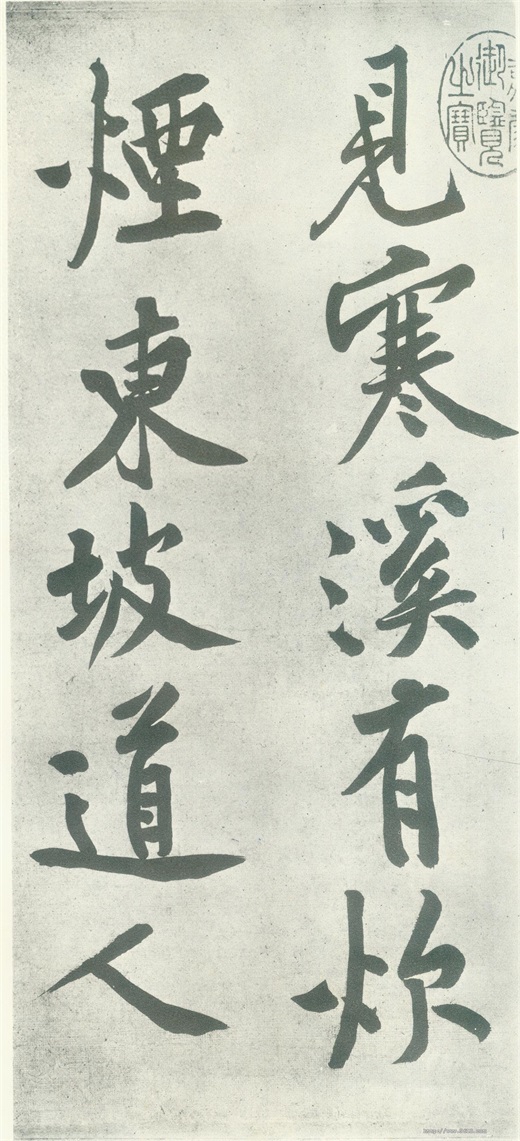 見寒溪有炊
煙東坡道人
御覽之寶